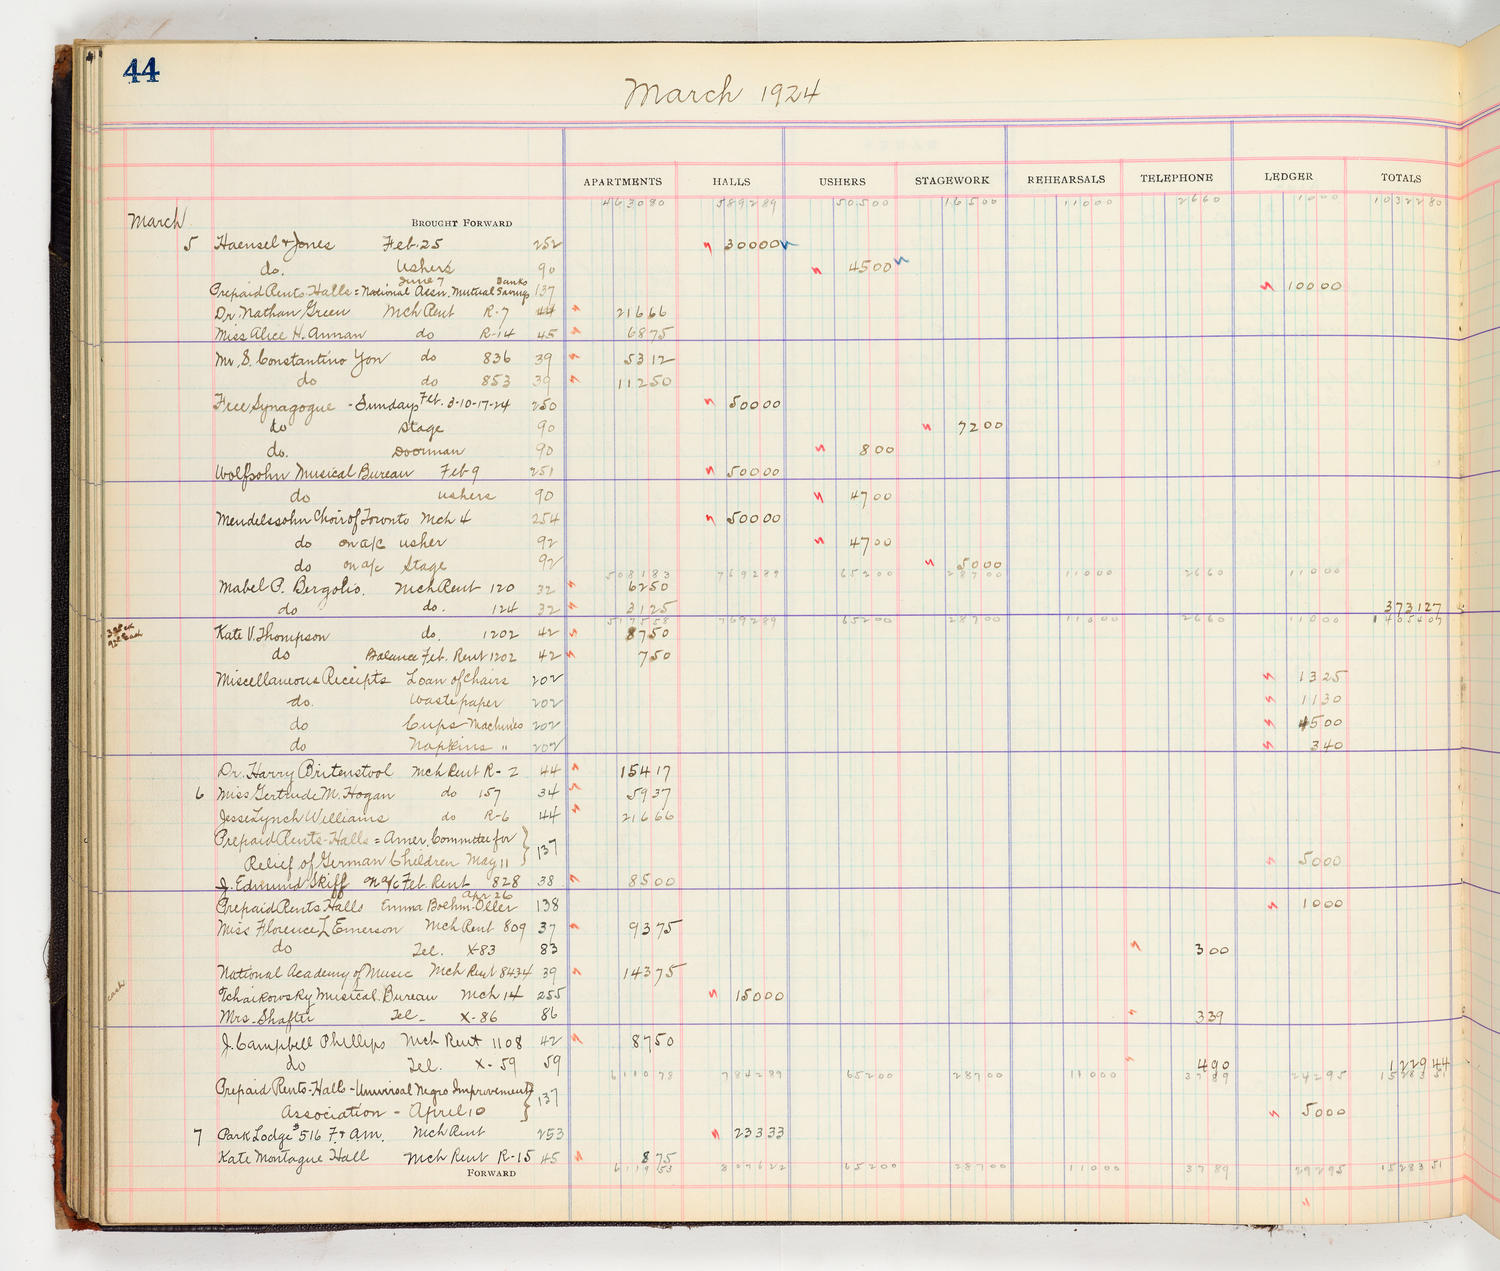 44
March 1924
APARTMENTS HALLS USHERS STAGEWORK REHEARSALS TELEPHONE LEDGER TOTALS
463080 589289 50500 16500 11000 2660 1000 1032280
March BROUGHT FORWARD
5 Haensel & Jones Feb. 25 252 30000
do. Ushers 90 4500
June 7 Banks
Prepaid Rents-Halls = National Assn. Mutual Savings 137 10000
Dr. Nathan Green Mch Rent R-7 44 21666
Miss Alice H. Annan do R-14 45 6875
Mr. S. Constantino Yon do 836 39 5312
do do 853 39 11250
Free Synagogue - Sundays Feb. 3-10-17-24 250 50000
do Stage 90 7200
do. Doorman 90 800
Wolfsohn Musical Bureau Feb 9 251 50000
do ushers 90 4700
Mendelssohn Choir of Toronto Mch 4 254 50000
do on a/c usher 92 4700
do on a/c Stage 92 5000
508183 769289 65200 28700 11000 2660 11000
Mabel P. Bergolio. Mch Rent 120 32 6250
do do. 124 32 3125 373127
517558 769289 65200 28700 11000 2660 11000 1405407
Kate V. Thompson do. 1202 42 8750
do Balance Feb. Rent 1202 42 750
Miscellaneous Receipts Loan of Chairs 202 1325
do. Waste paper 202 1130
do Cups Machines 202 4500
do Napkins " 202 340
Dr. Harry Birtenstool Mch Rent R-2 44 15417
6 Miss Gertrude M. Hogan do 157 34 5937
Jesse Lynch Williams do R-6 44 21666
Prepaid Rents-Halls = Amer. Committee for
Relief of German Children May 11 137 5000
J. Edmund Skiff on a/c Feb. Rent 828 38 8500
Apr 26
Prepaid Rents Halls Emma Boehm-Oller 138 1000
Miss Florence L Emerson Mch Rent 809 37 9375
do Tel. X-83 83 300
National Academy of Music Mch Rent 8434 39 14375
cash Tchaikowsky Musical Bureau Mch 14 255 15000
Mrs. Shafter Tel. X-86 86 339
J. Campbell Phillips Mch Rent 1108 42 8750
do Tel. X-59 59 490 122944
611078 784289 65200 28700 11000 3789 24295 1528351
Prepaid Rents-Halls - Universal Negro Improvement
Association - April 10 137 5000
7 Park Lodge #516 F. & A.M. Mch Rent 253 23333
Kate Montague Hall Mch Rent R-15 45 875
FORWARD 611953 807622 65200 28700 11000 3789 29295 1528351